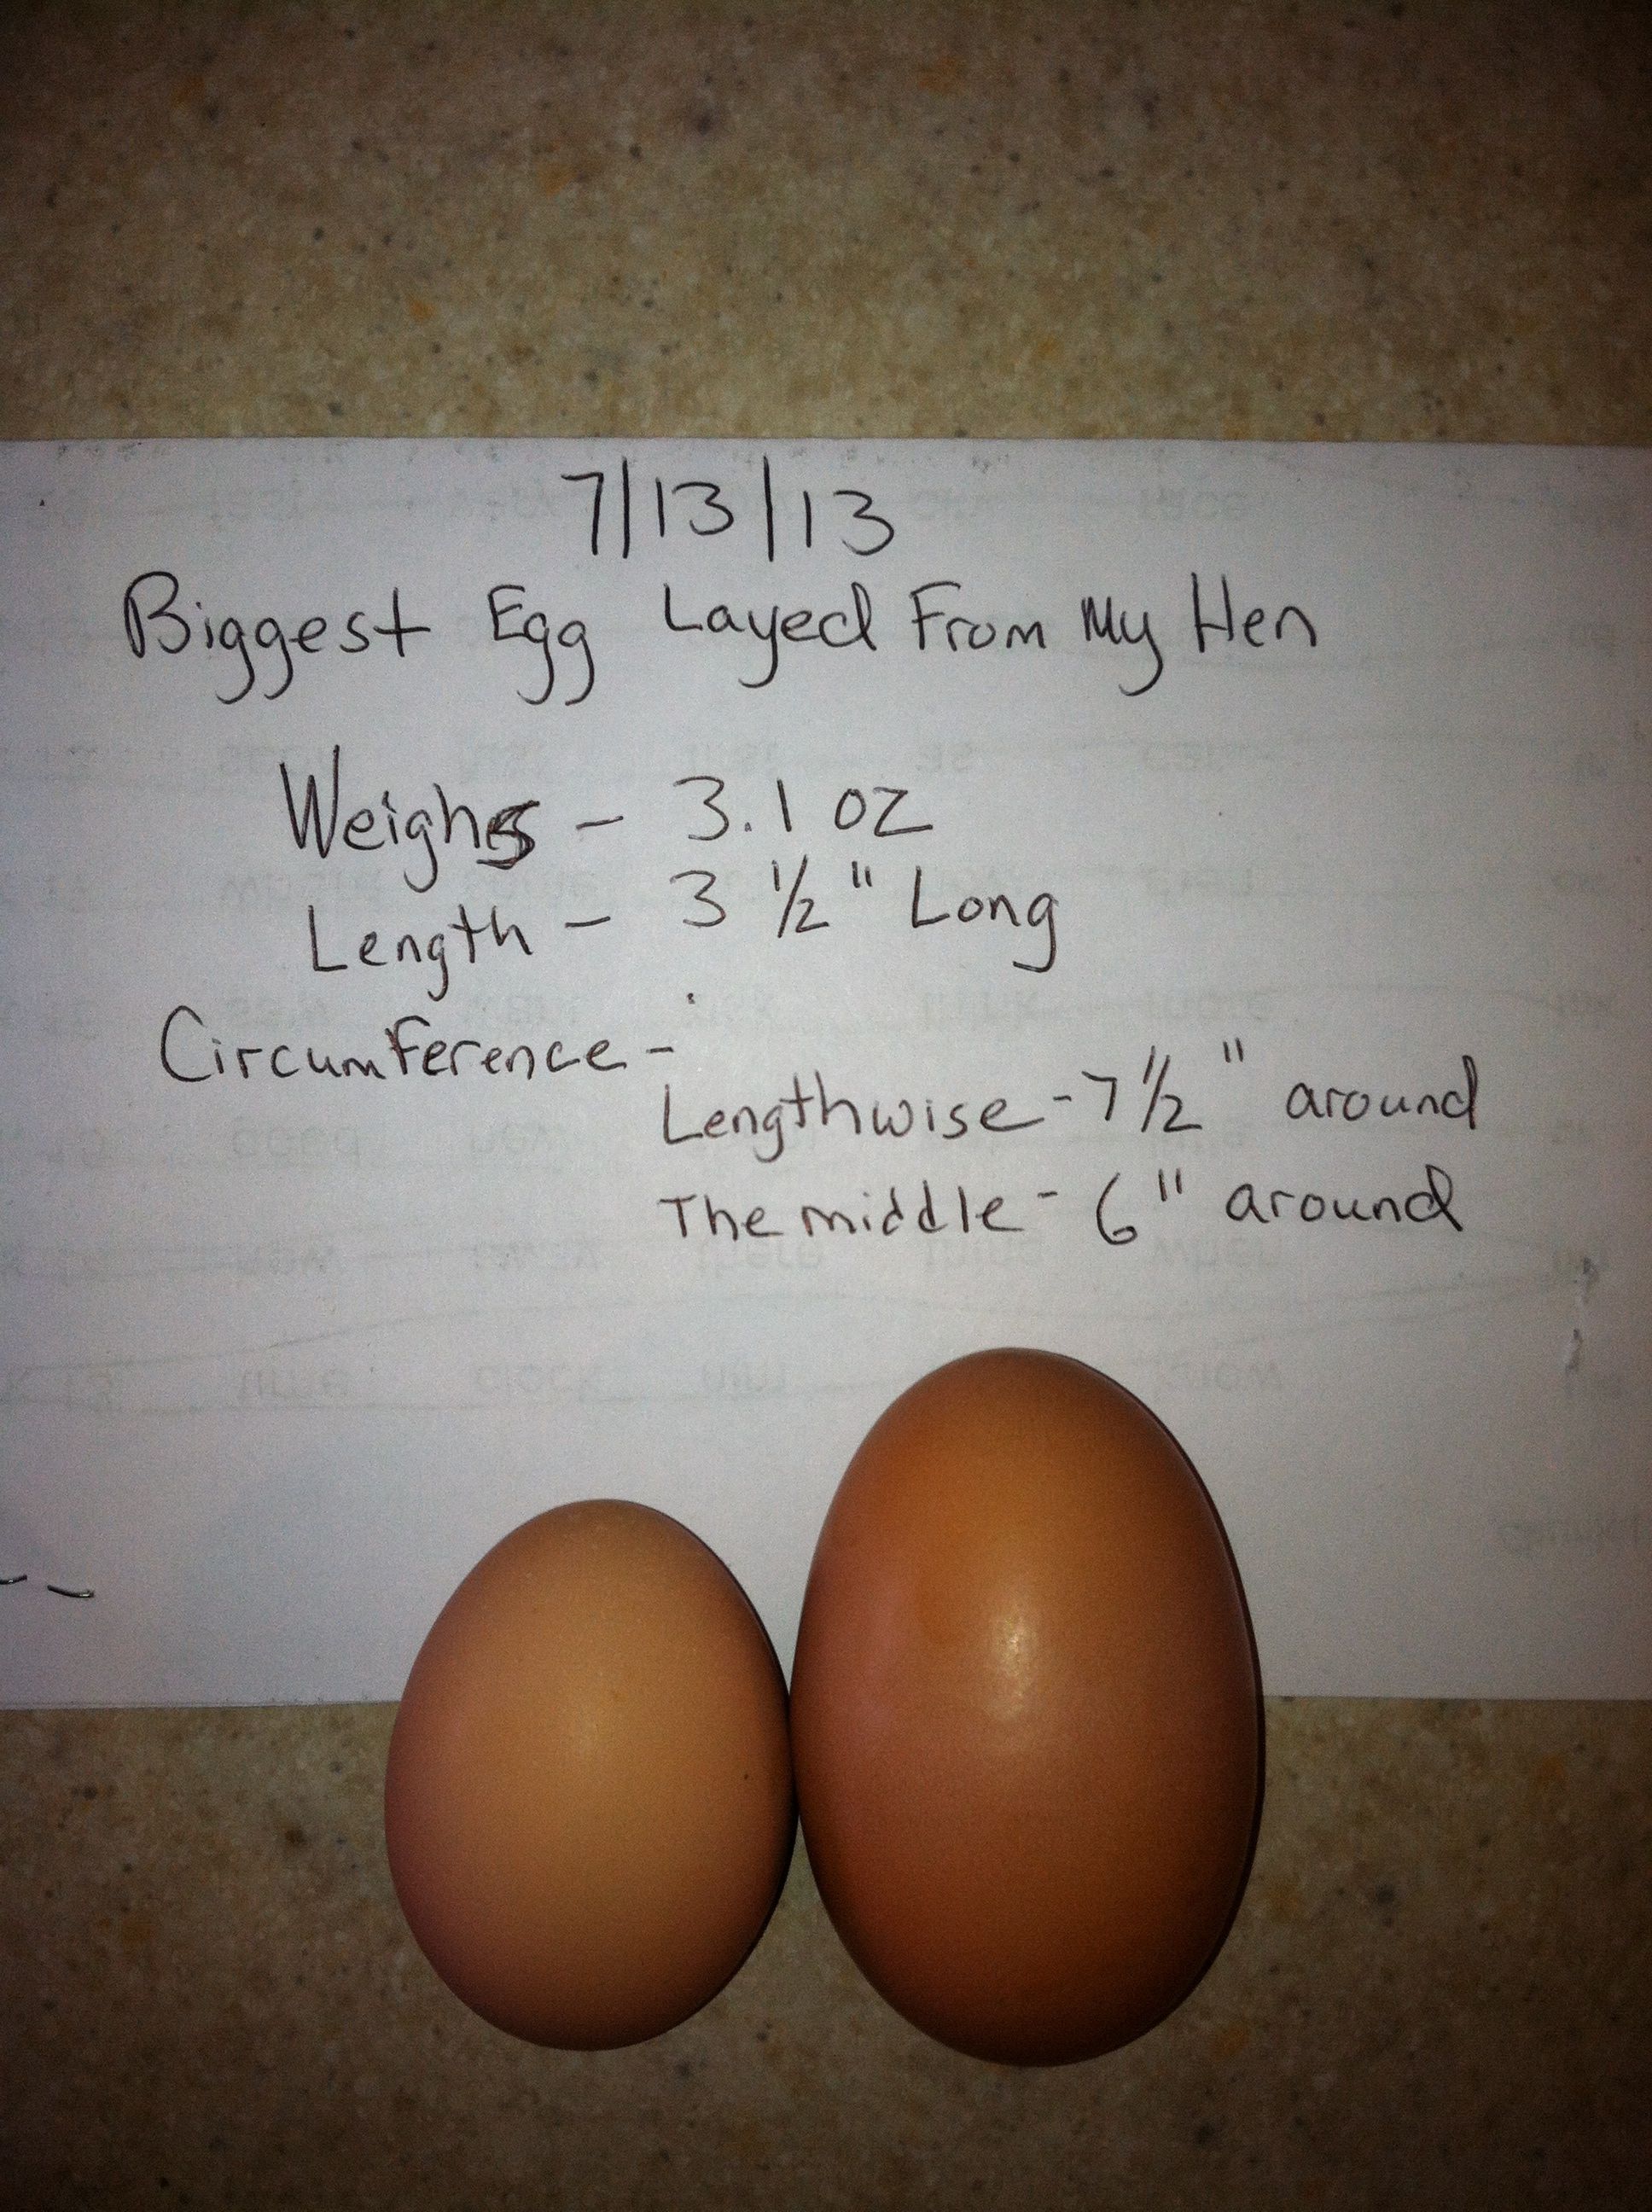 7/13/13
Biggest Egg Layed From My Hen
Weighs - 3.1 oz
Length - 3 1/2" Long
Circumference -
Lengthwise - 7 1/2" around
The middle - 6" around
clock